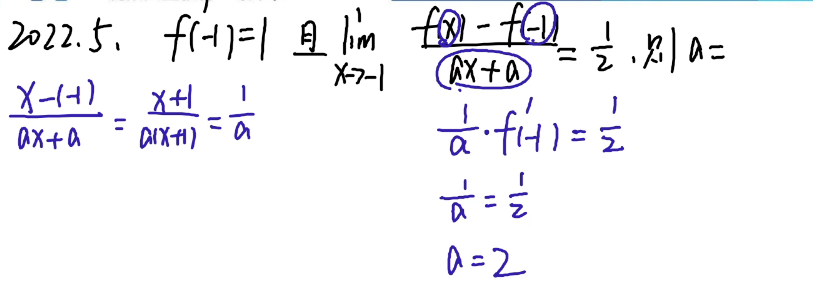 2022.5. f(-1)=1 且 lim x->-1 f(x)-f(-1) / ax+a = 1/2 . 则 a=
x-(-1) / ax+a = x+1 / a(x+1) = 1/a
1/a · f'(-1) = 1/2
1/a = 1/2
a=2